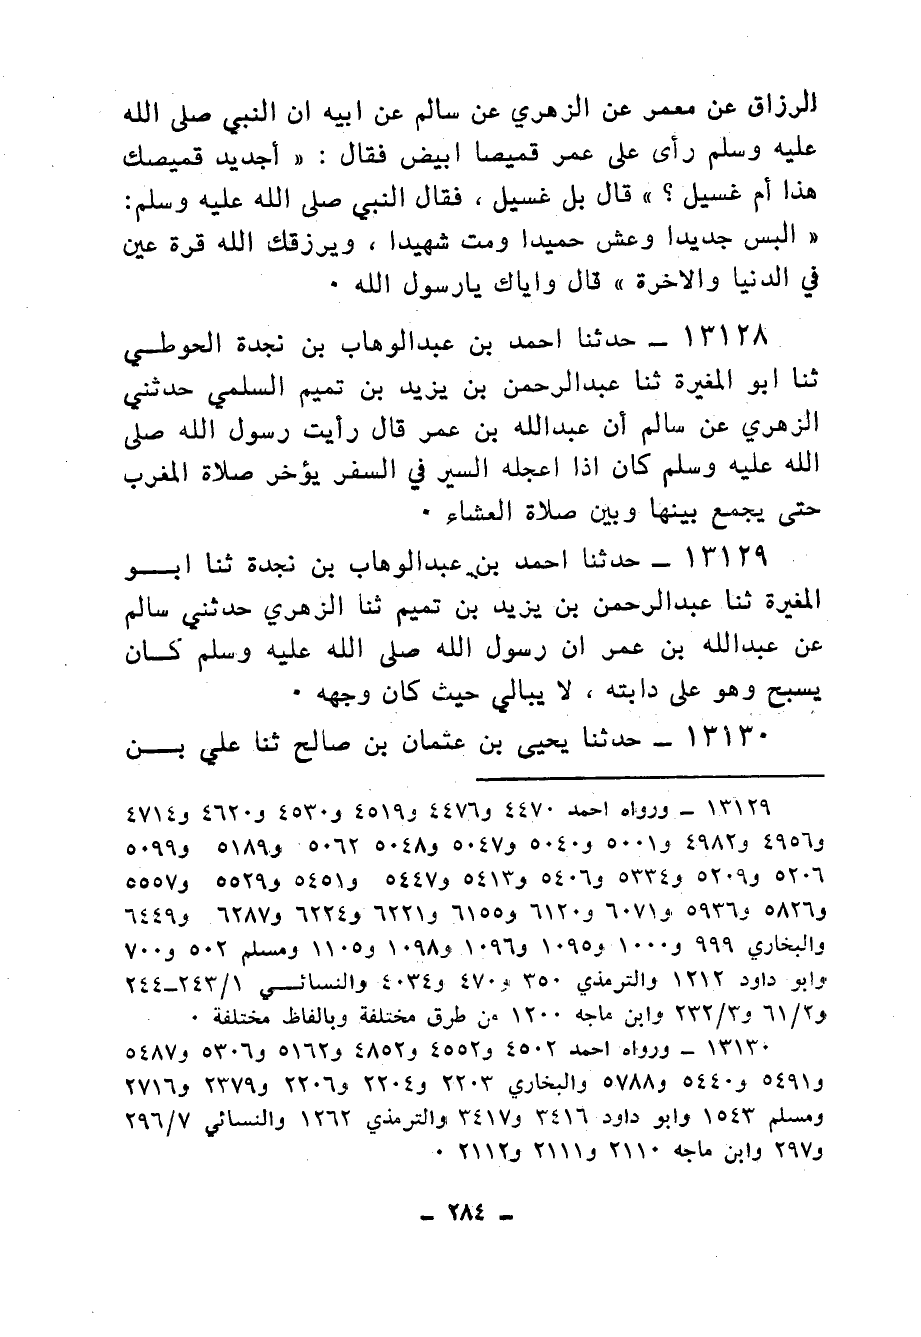 الرزاق عن معمر عن الزهري عن سالم عن ابيه ان النبي صلى الله
عليه وسلم رأى على عمر قميصا ابيض فقال : « أجديد قميصك
هذا أم غسيل ؟ » قال بل غسيل ، فقال النبي صلى الله عليه وسلم:
« البس جديدا وعش حميدا ومت شهيدا ، ويرزقك الله قرة عين
في الدنيا والاخرة » قال واياك يارسول الله ٠
١٣١٢٨ ــ حدثنا احمد بن عبدالوهاب بن نجدة الحوطـي
ثنا ابو المغيرة ثنا عبدالرحمن بن يزيد بن تميم السلمي حدثني
الزهري عن سالم أن عبدالله بن عمر قال رأيت رسول الله صلى
الله عليه وسلم كان اذا اعجله السير في السفر يؤخر صلاة المغرب
حتى يجمع بينها وبين صلاة العشاء ٠
١٣١٢٩ ــ حدثنا احمد بن عبدالوهاب بن نجدة ثنا ابـــو
المغيرة ثنا عبدالرحمن بن يزيد بن تميم ثنا الزهري حدثني سالم
عن عبدالله بن عمر ان رسول الله صلى الله عليه وسلم كــان
يسبح وهو على دابته ، لا يبالي حيث كان وجهه ٠
١٣١٣٠ ــ حدثنا يحيى بن عثمان بن صالح ثنا علي بـــن
١٣١٢٩ ــ ورواه احمد ٤٤٧٠ و٤٤٧٦ و٤٥١٩ و٤٥٣٠ و٤٦٢٠ و٤٧١٤
و٤٩٥٦ و٤٩٨٢ و٥٠٠١ و٥٠٤٠ و٥٠٤٧ و٥٠٤٨ ٥٠٦٢ و٥١٨٩ و٥٠٩٩
٥٢٠٦ و٥٢٠٩ و٥٣٣٤ و٥٤٠٦ و٥٤١٣ و٥٤٤٧ و٥٤٥١ و٥٥٢٩ و٥٥٥٧
و٥٨٢٦ و٥٩٣٦ و٦٠٧١ و٦١٢٠ و٦١٥٥ و٦٢٢١ و٦٢٢٤ و٦٢٨٧ و٦٤٤٩
والبخاري ٩٩٩ و١٠٠٠ و١٠٩٥ و١٠٩٦ و١٠٩٨ و١١٠٥ ومسلم ٥٠٢ و٧٠٠
وابو داود ١٢١٢ والترمذي ٣٥٠ و٤٧٠ و٤٠٣٤ والنسائـــي ٢٤٣/١ــ٢٤٤
و٦١/٢ و٢٣٢/٣ وابن ماجه ١٢٠٠ من طرق مختلفة وبالفاظ مختلفة ٠
١٣١٣٠ ــ ورواه احمد ٤٥٠٢ و٤٥٥٢ و٤٨٥٢ و٥١٦٢ و٥٣٠٦ و٥٤٨٧
و٥٤٩١ و٥٤٤٠ و٥٧٨٨ والبخاري ٢٢٠٣ و٢٢٠٤ و٢٢٠٦ و٢٣٧٩ و٢٧١٦
ومسلم ١٥٤٣ وابو داود ٣٤١٦ و٣٤١٧ والترمذي ١٢٦٢ والنسائي ٢٩٦/٧
و٢٩٧ وابن ماجه ٢١١٠ و٢١١١ و٢١١٢ ٠
ــ ٢٨٤ ــ